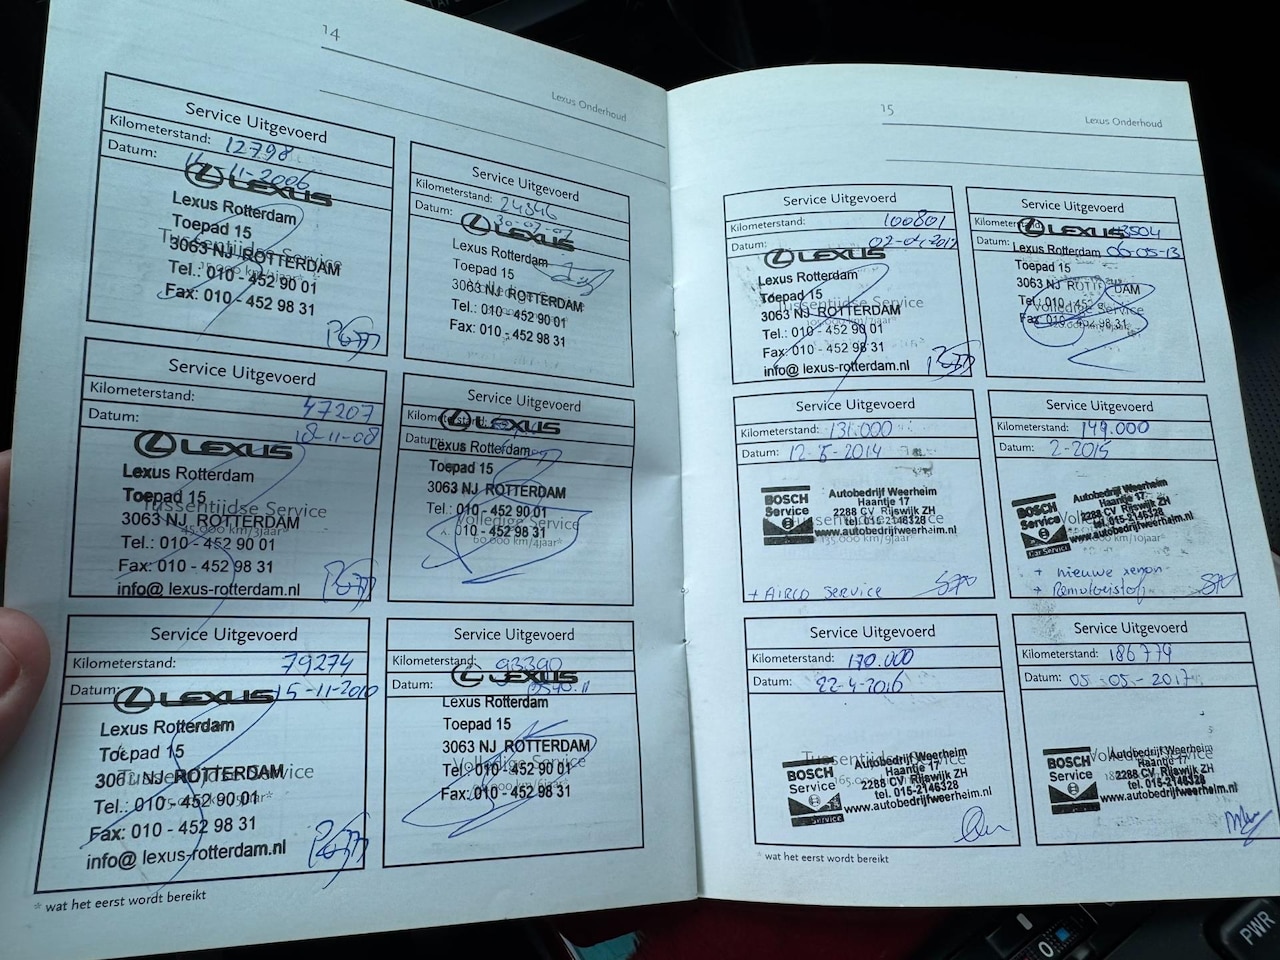 14
Lexus Onderhoud
Service Uitgevoerd
Kilometerstand: 12798
Datum: 11-2006
LEXUS
Lexus Rotterdam
Toepad 15
Tussentijdse Service
3063 NJ ROTTERDAM
Tel.: 010 - 452 90 01
Fax: 010 - 452 98 31
Service Uitgevoerd
Kilometerstand: 24346
Datum: 30-07-07
LEXUS
Lexus Rotterdam
Toepad 15
3063 NJ ROTTERDAM
Tel.: 010 - 452 90 01
Fax: 010 - 452 98 31
Service Uitgevoerd
Kilometerstand: 47207
Datum: 18-11-08
LEXUS
Lexus Rotterdam
Toepad 15
Tussentijdse Service
3063 NJ ROTTERDAM
45.000 km/3jaar*
Tel.: 010 - 452 90 01
Fax: 010 - 452 98 31
info@ lexus-rotterdam.nl
Service Uitgevoerd
Kilometerstand:
Datum:
LEXUS
Lexus Rotterdam
Toepad 15
3063 NJ ROTTERDAM
Tel.: 010 - 452 90 01
Volledige Service
010 - 452 98 31
60.000 km/4jaar*
Service Uitgevoerd
Kilometerstand: 79274
Datum: 15-11-2010
LEXUS
Lexus Rotterdam
Toepad 15
3063 NJ ROTTERDAM
Tussentijdse Service
Tel.: 010 - 452 90 01
Fax: 010 - 452 98 31
info@ lexus-rotterdam.nl
Service Uitgevoerd
Kilometerstand: 93390
Datum:
LEXUS
Lexus Rotterdam
Toepad 15
3063 NJ ROTTERDAM
Volledige Service
Tel.: 010 - 452 90 01
Fax: 010 - 452 98 31
* wat het eerst wordt bereikt
15
Lexus Onderhoud
Service Uitgevoerd
Kilometerstand: 100801
Datum:
LEXUS
Lexus Rotterdam
Toepad 15
Tussentijdse Service
3063 NJ ROTTERDAM
Tel.: 010 - 452 90 01
Fax: 010 - 452 98 31
info@ lexus-rotterdam.nl
Service Uitgevoerd
LEXUS
Datum: 06-05-13
Lexus Rotterdam
Toepad 15
3063 NJ ROTTERDAM
Tel.: 010 - 452
Volledige Service
Fax: 010 - 452 98 31
Service Uitgevoerd
Kilometerstand: 131.000
Datum: 12-5-2014
BOSCH
Service
Autobedrijf Weerheim
Haantje 17
2288 CV Rijswijk ZH
Tussentijdse Service
tel. 015-2146328
www.autobedrijfweerheim.nl
135.000 km/9jaar*
+ AIRCO SERVICE
Service Uitgevoerd
Kilometerstand: 149.000
Datum: 2-2015
BOSCH
Service
Car Service
Autobedrijf Weerheim
Haantje 17
2288 CV Rijswijk ZH
tel. 015-2146328
www.autobedrijfweerheim.nl
+ nieuwe xenon
+ Remvloeistof
Service Uitgevoerd
Kilometerstand: 170.000
Datum: 22-4-2016
Tussentijdse Service
BOSCH
Service
Service
Autobedrijf Weerheim
Haantje 17
2288 CV Rijswijk ZH
tel. 015-2146328
www.autobedrijfweerheim.nl
Service Uitgevoerd
Kilometerstand: 186774
Datum: 05-05-2017
Volledige Service
BOSCH
Service
Autobedrijf Weerheim
Haantje 17
2288 CV Rijswijk ZH
tel. 015-2146328
www.autobedrijfweerheim.nl
* wat het eerst wordt bereikt
0
PWR